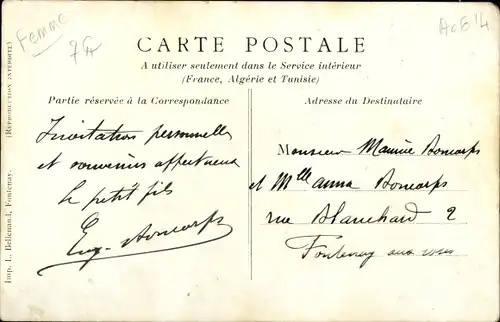 Femme
7f
A0614
CARTE POSTALE
A utiliser seulement dans le Service intérieur
(France, Algérie et Tunisie)
Partie réservée à la Correspondance
Adresse du Destinataire
Invitation personnelle
et souvenirs affectueux
Le petit fils
Eug. Boncorps
Monsieur Maurice Boncorps
et Mlle anna Boncorps
rue Blanchard 2
Fontenay aux roses
Imp. L. Bellenand, Fontenay.
(REPRODUCTION INTERDITE)